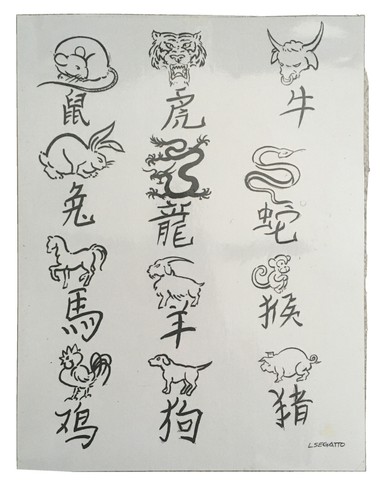 鼠 虎 牛
兔 龍 蛇
馬 羊 猴
鸡 狗 猪
L.SEGATTO